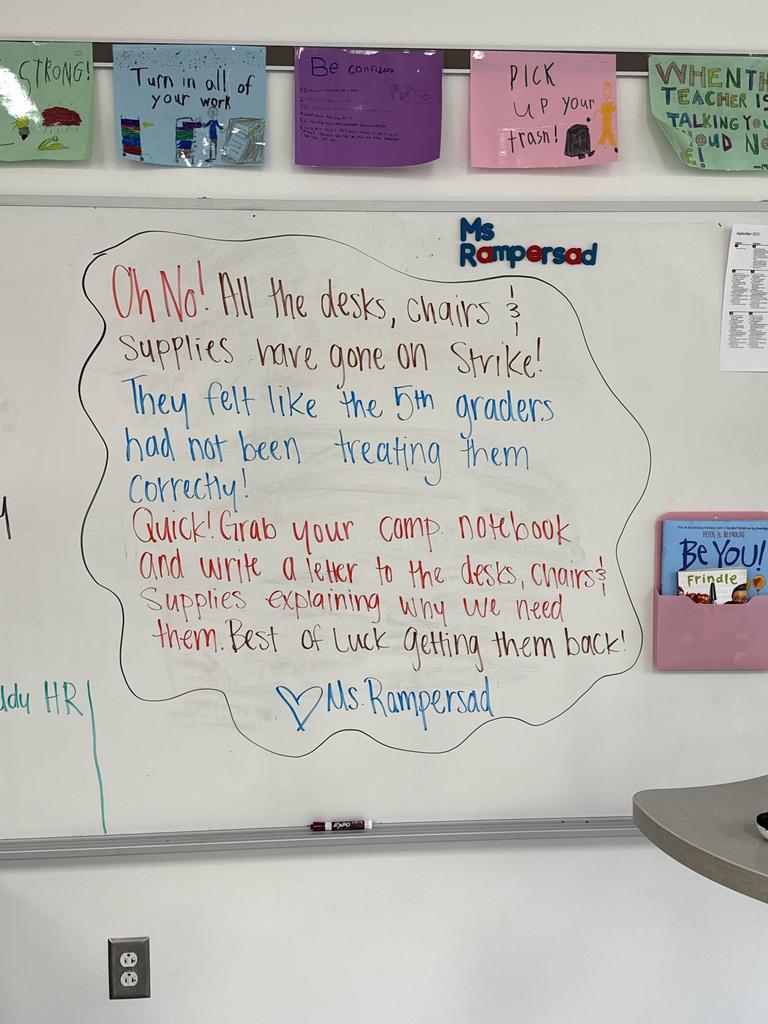 STRONG!
Turn in all of
your work
Be confident
PICK
UP your
trash!
WHEN TH
TEACHER IS
TALKING YOU
E!
Ms
Rampersad
September 2025
Oh No! All the desks, chairs &
supplies have gone on strike!
They felt like the 5th graders
had not been treating them
correctly!
Quick! Grab your comp. notebook
and write a letter to the desks, chairs &
supplies explaining why we need
them. Best of luck getting them back!
♡ Ms. Rampersad
udy HR
PETER H. REYNOLDS
BE YOU!
Frindle
EXPO